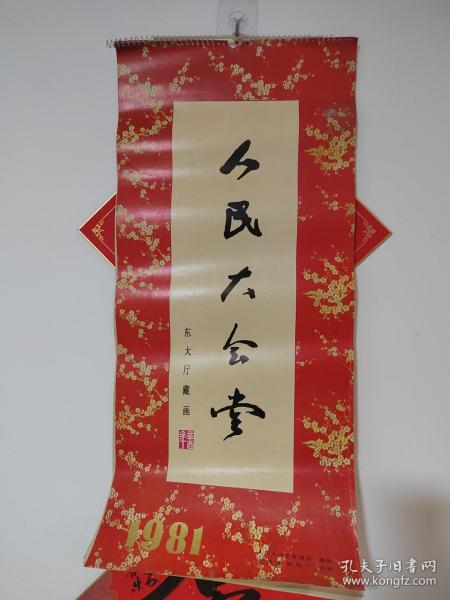 人民大会堂
东大厅藏画
1981
孔夫子旧书网
www.kongfz.com